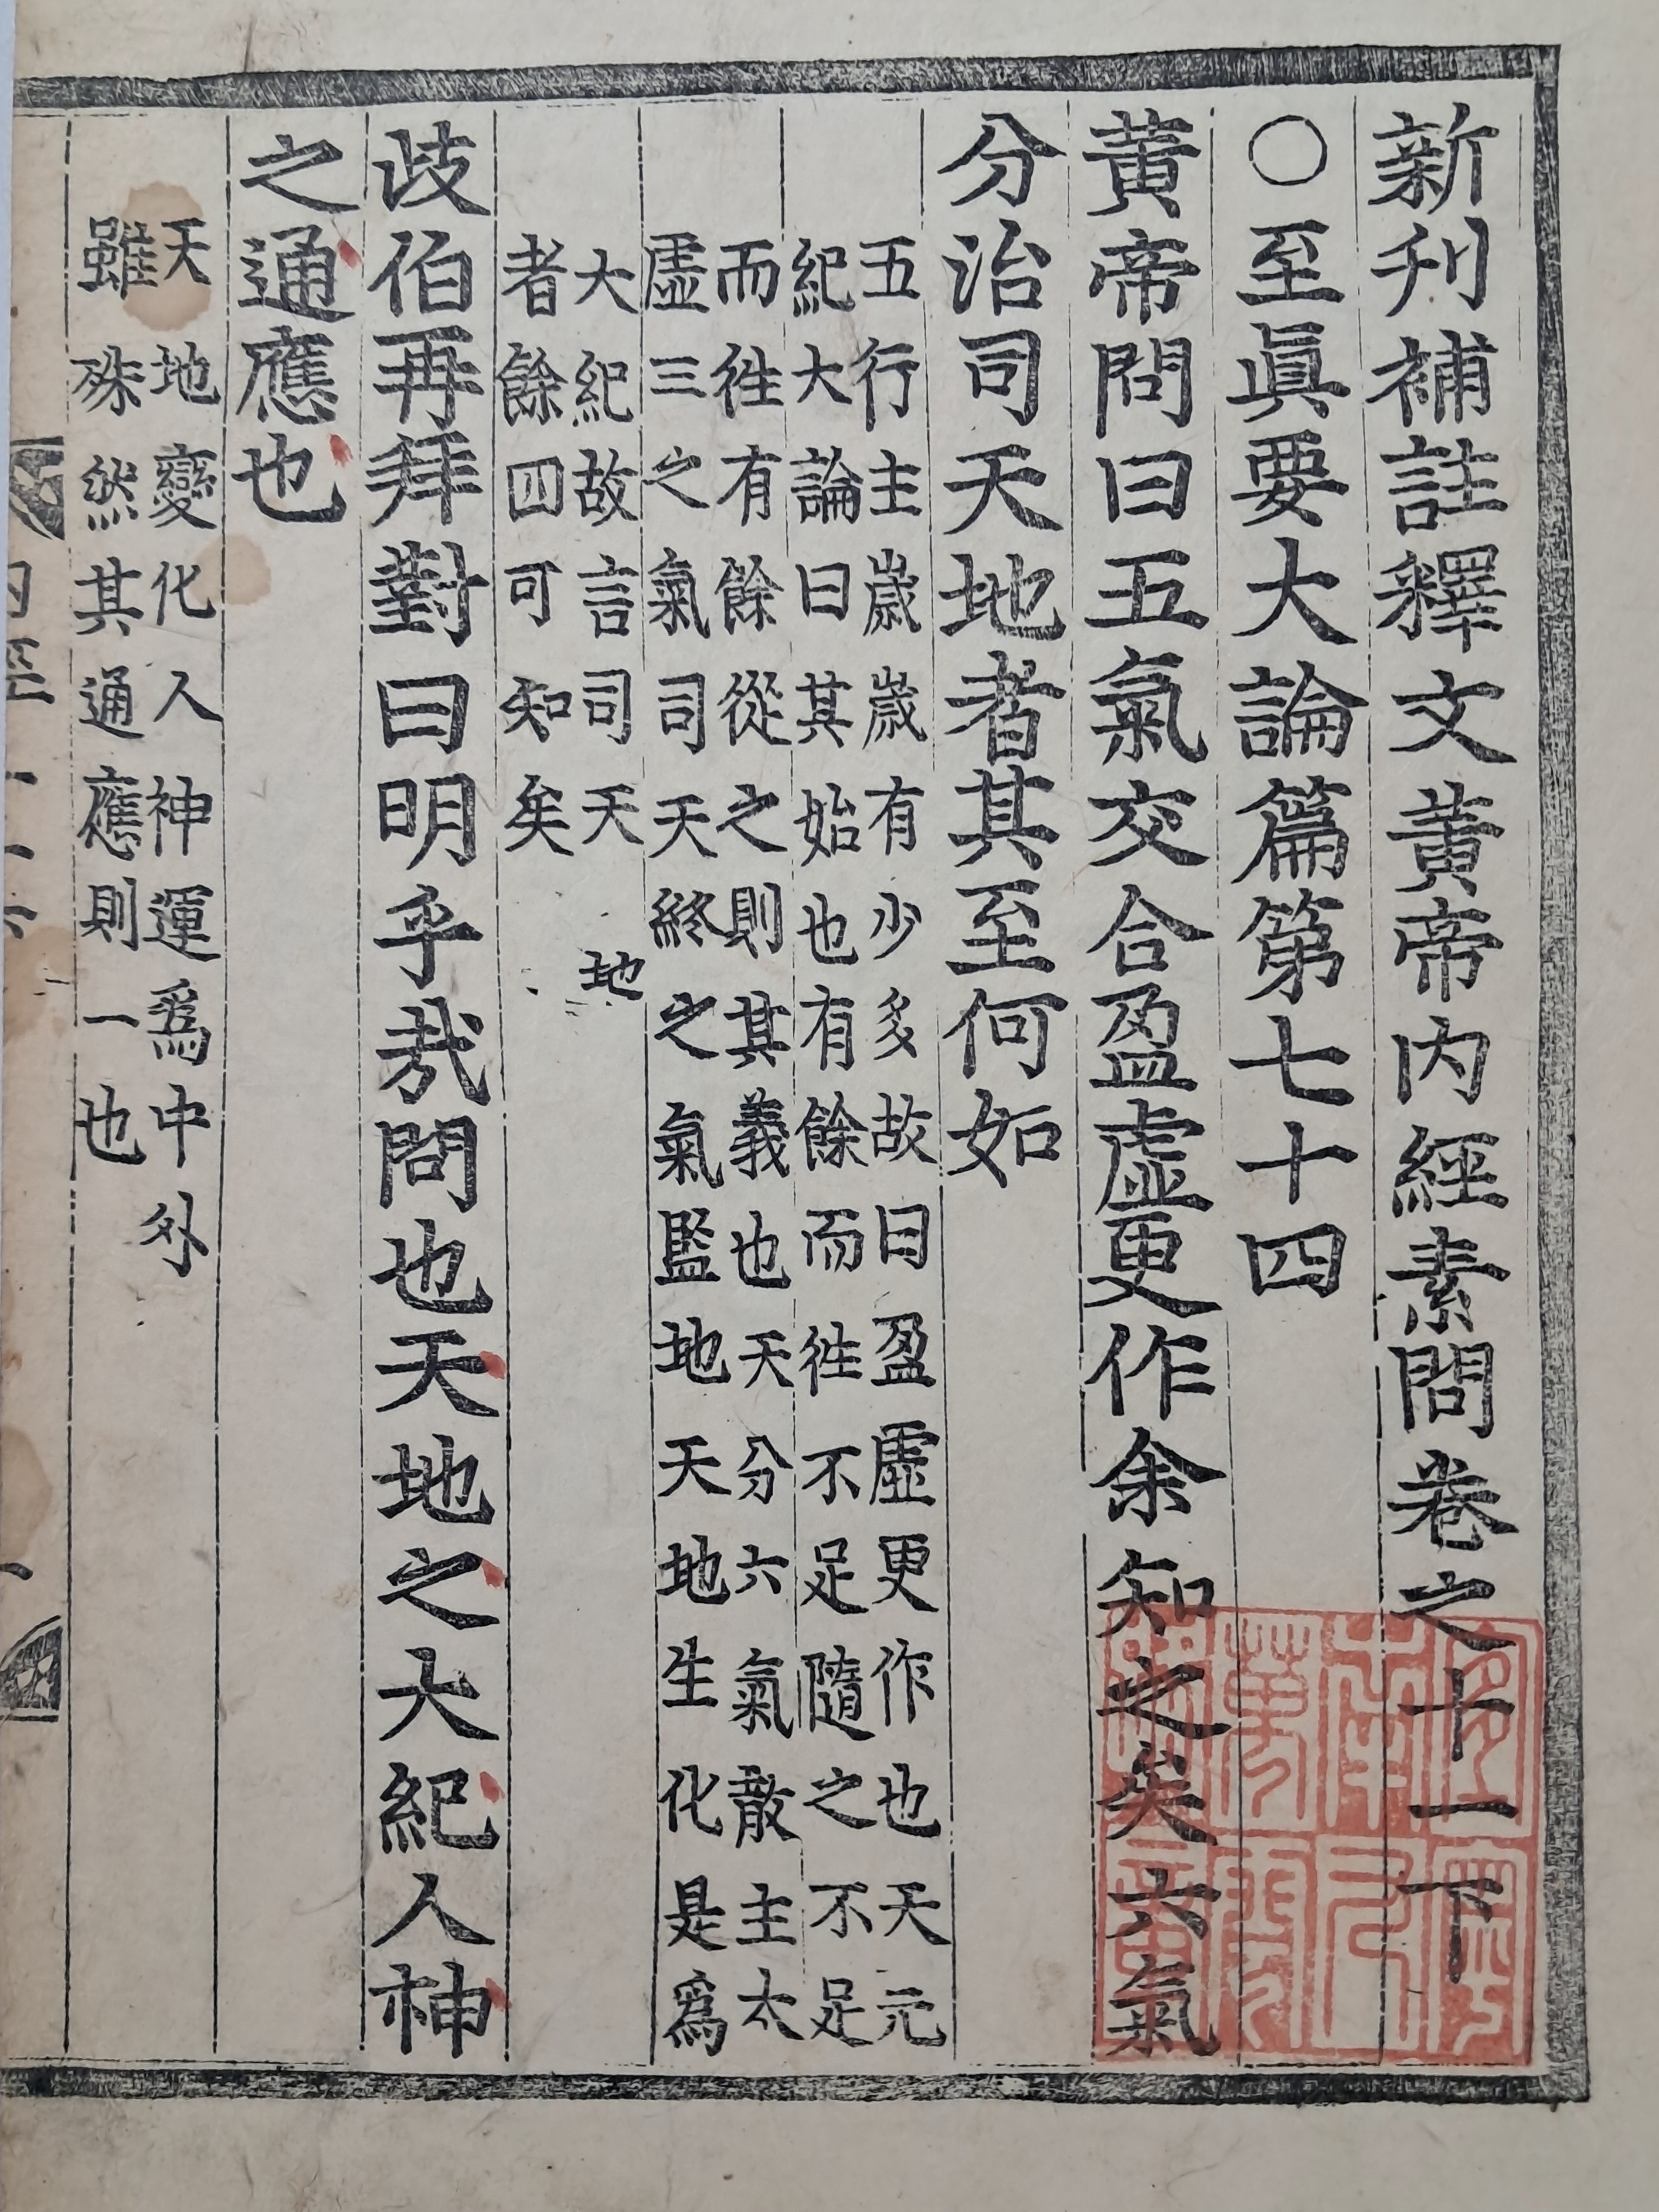 新刋補註釋文黃帝內經素問卷之十一下
○至眞要大論篇第七十四
黃帝問曰五氣交合盈虛更作余知之矣六氣
分治司天地者其至何如
五行主歲歲有少多故曰盈虛更作也天元
紀大論曰其始也有餘而徃不足隨之不足
而徃有餘從之則其義也天分六氣散主太
虛三之氣司天終之氣監地天地生化是爲
大紀故言司天地
者餘四可知矣
歧伯再拜對曰明乎哉問也天地之大紀人神
之通應也
天地變化人神運爲中外
雖殊然其通應則一也